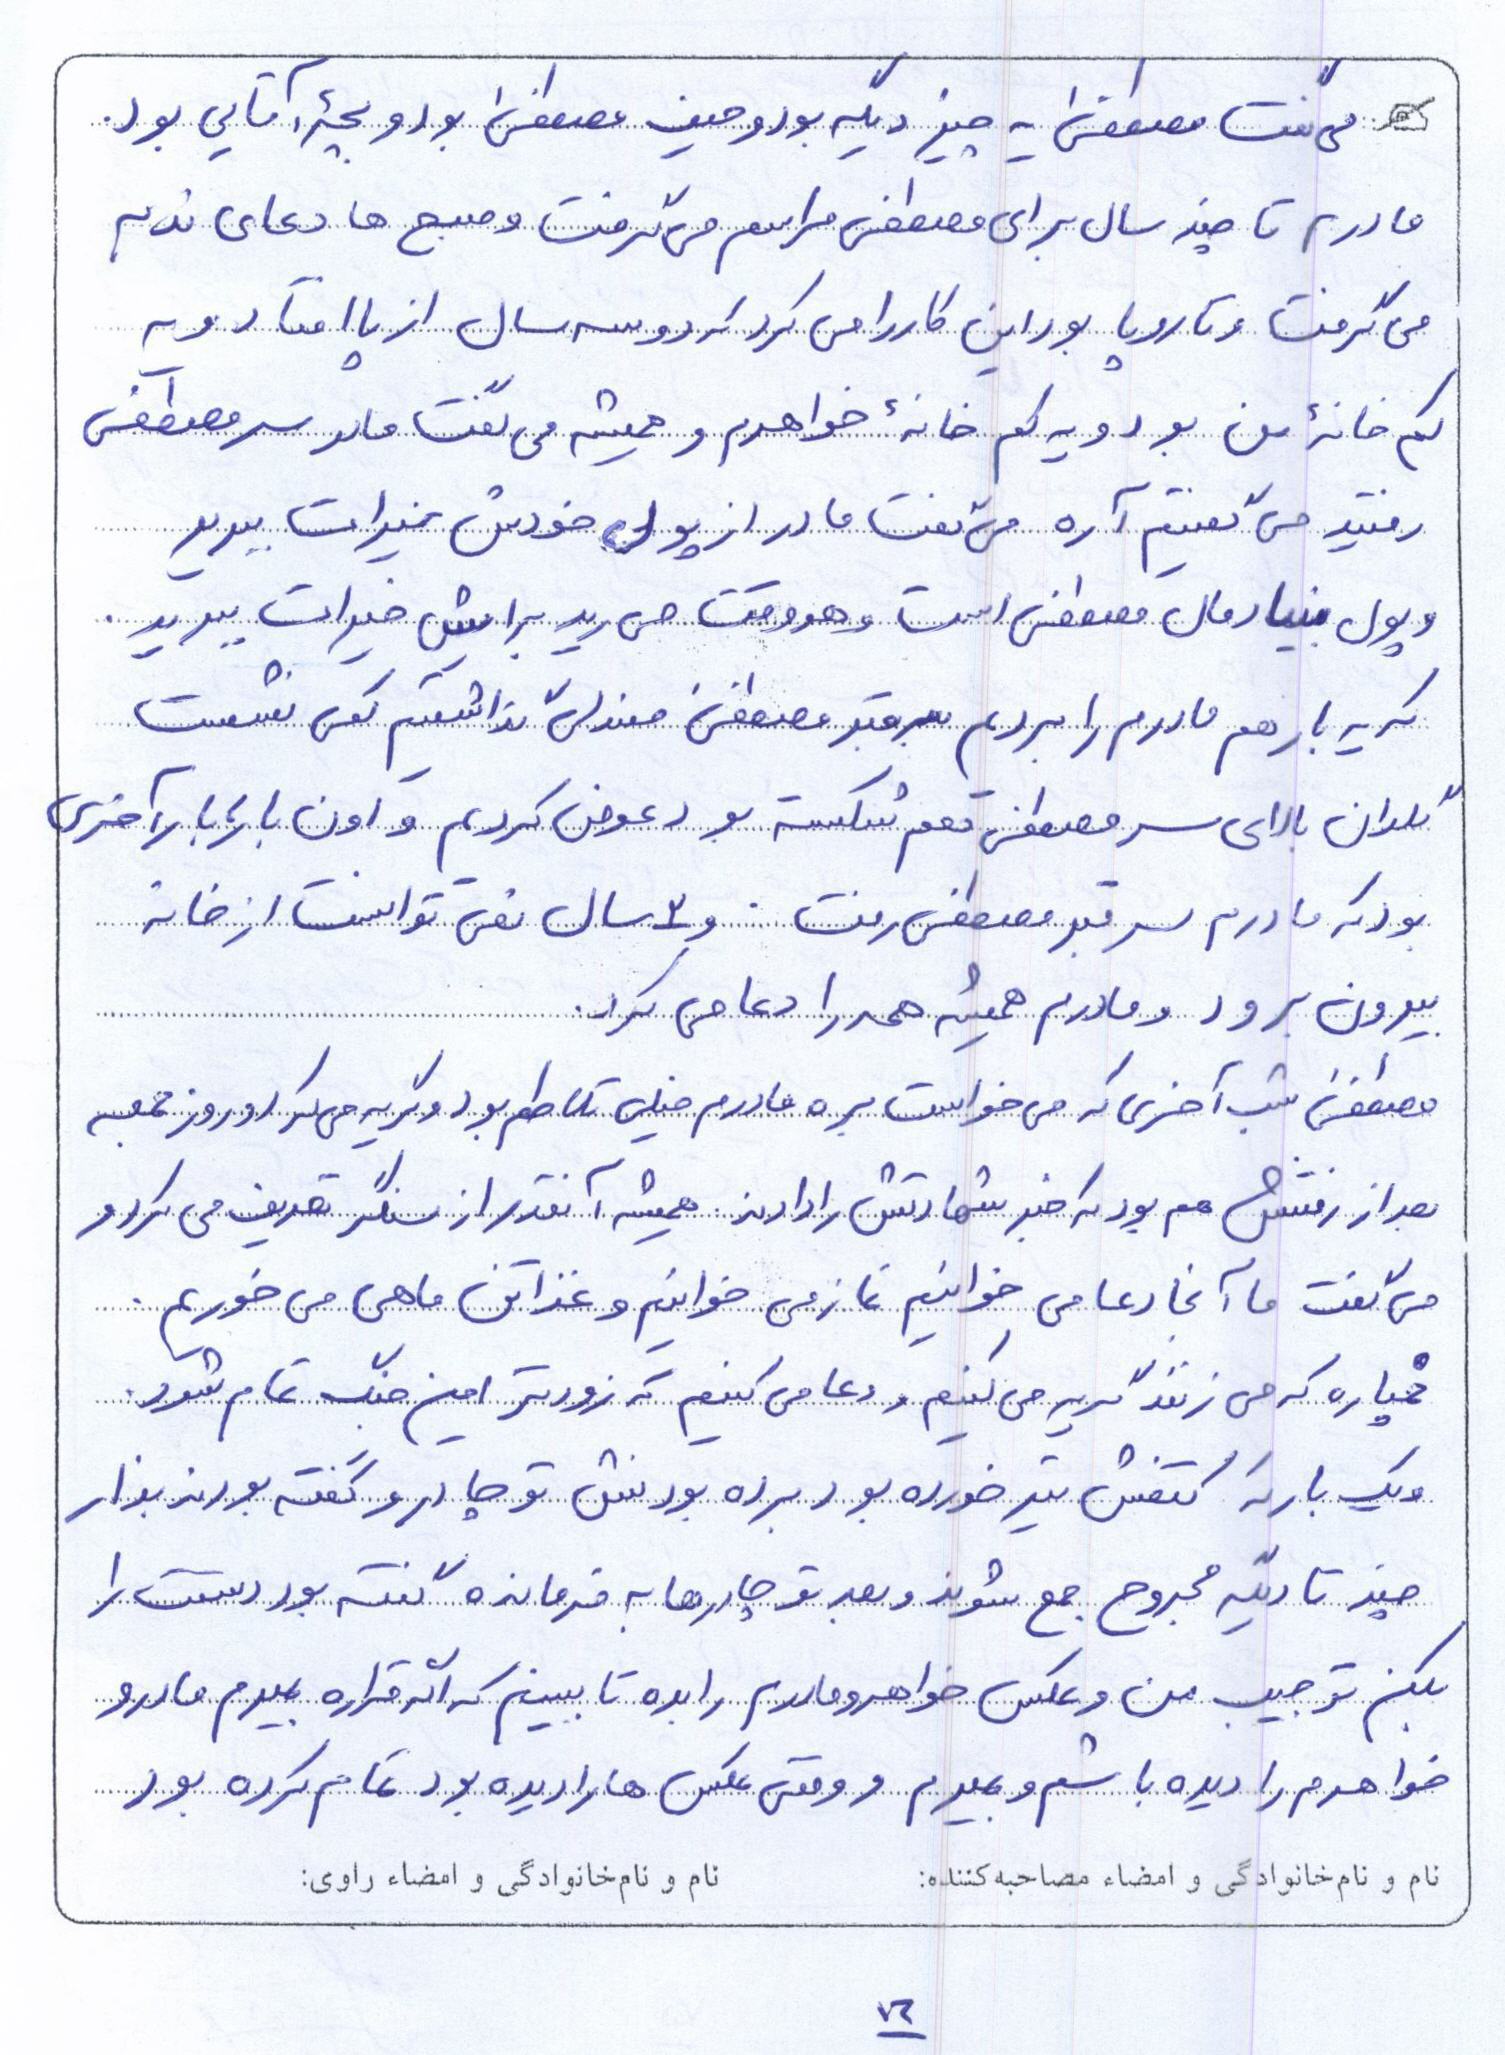 می‌گفت مصطفی یه چیز دیگه بود و حیف مصطفی بود و بچۀ آقایی بود.
مادرم تا چند سال برای مصطفی مراسم می‌گرفت و صبح ها دعای ندبه
می‌گرفت و تا روپا بود این کار را می کرد که دو سه سال از پا افتاد و یه
کم خانۀ من بود و یه کم خانۀ خواهرم و همیشه می گفت مادر سر مصطفی
رفتید می‌گفتیم آره می‌گفت مادر از پول خودش خیرات ببرید
و پول بنیاد مال مصطفی است و هر وقت می رید برایش خیرات ببرید.
که یه بار هم مادرم را بردیم سر قبر مصطفی صندلی گذاشتیم کمی نشست
گلدان بالای سر مصطفی هم شکسته بود عوض کردیم و اون بار، بار آخری
بود که مادرم سر قبر مصطفی رفت . و ۲ سال نمی توانست از خانه
بیرون برود و مادرم همیشه همه را دعا می کرد.
مصطفی شب آخری که می خواست بره مادرم خیلی تلاطم بود و گریه می کرد و روز جمعه
بعد از رفتنش هم بود که خبر شهادتش را دادند. همیشه آنقدر از سنگر تعریف می کرد و
می‌گفت ما آنجا دعا می خوانیم نماز می خوانیم و غذا تن ماهی می خوریم.
خمپاره که می زنند گریه می کنیم و دعا می کنیم که زودتر این جنگ تمام شود.
و یک بار که کتفش تیر خورده بود برده بودنش تو چادر و گفته بودند بذار
چند تا دیگه مجروح جمع شوند و بعد تو چادرها به فرمانده گفته بود دستت را
بکن تو جیب من و عکس خواهر و مادرم را بده تا ببینم که اگه قراره بمیرم مادر و
خواهرم را دیده باشم و بمیرم و وقتی عکس ها را دیده بود تمام کرده بود
نام و نام‌خانوادگی و امضاء مصاحبه‌کننده: نام و نام‌خانوادگی و امضاء راوی:
۷۶